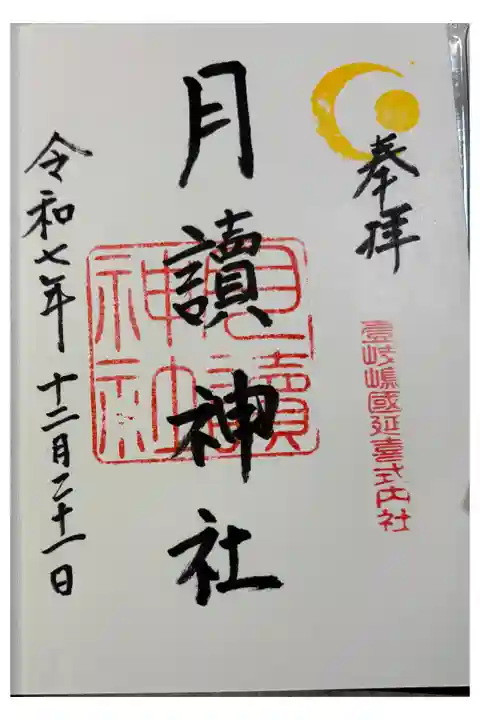 奉拝
壹岐嶋國延喜式内社
月讀神社
月讀
神社
令和七年十二月二十一日